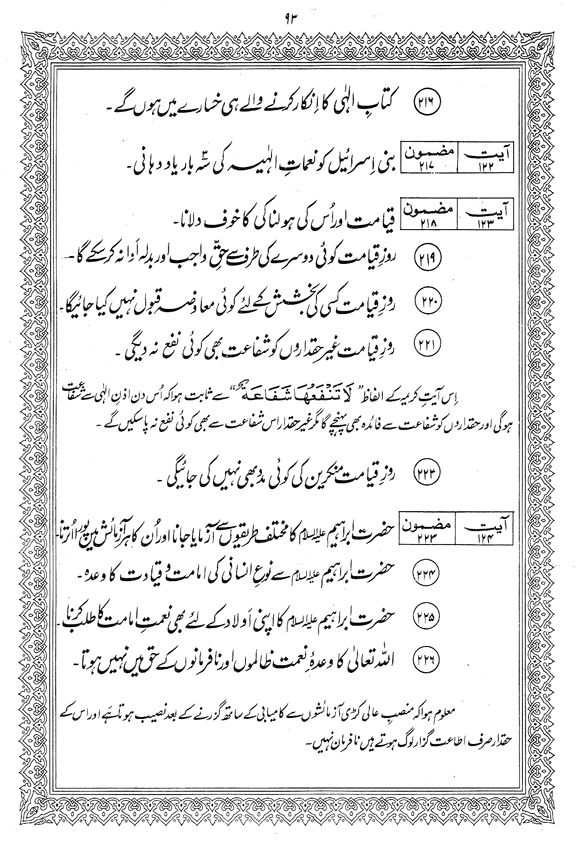 ۹۳
۲۱۶ کتابِ الٰہی کا اِنکار کرنے والے ہی خسارے میں ہوں گے۔
آیت ۱۲۲ مضمون ۲۱۷ بنی اِسرائیل کو نعماتِ الٰہیہ کی سہ بار یاد دہانی۔
آیت ۱۲۳ مضمون ۲۱۸ قیامت اور اُس کی ہولناکی کا خوف دلانا۔
۲۱۹ روزِ قیامت کوئی دوسرے کی طرف سے حقِّ واجب اور بدلہ اَدا نہ کر سکے گا۔
۲۲۰ روزِ قیامت کسی کی بخشش کے لئے کوئی معاوضہ قبول نہیں کیا جائیگا۔
۲۲۱ روزِ قیامت غیر حقداروں کو شفاعت بھی کوئی نفع نہ دیگی۔
اِس آیتِ کریمہ کے الفاظ ”لَا تَنْفَعُهَا شَفَاعَةٌ“ سے ثابت ہوا کہ اُس دن اذنِ الٰہی سے شفاعت
ہوگی اور حقداروں کو شفاعت سے فائدہ بھی پہنچے گا مگر غیر حقدار اس شفاعت سے بھی کوئی نفع نہ پا سکیں گے۔
۲۲۲ روزِ قیامت منکرین کی کوئی مدد بھی نہیں کی جائیگی۔
آیت ۱۲۴ مضمون ۲۲۳ حضرت ابراہیم علیہ السلام کا مختلف طریقوں سے آزمایا جانا اور اُن کا ہر آزمائش میں پورا اُترنا۔
۲۲۴ حضرت ابراہیم علیہ السلام سے نوعِ انسانی کی امامت و قیادت کا وعدہ۔
۲۲۵ حضرت ابراہیم علیہ السلام کا اپنی اَولاد کے لئے بھی نعمتِ امامت کا طلب کرنا۔
۲۲۶ اللہ تعالیٰ کا وعدۂ نعمت ظالموں اور نافرمانوں کے حق میں نہیں ہوتا۔
معلوم ہوا کہ منصبِ عالی کڑی آزمائشوں سے کامیابی کے ساتھ گزرنے کے بعد نصیب ہوتا ہے اور اس کے
حقدار صرف اطاعت گزار لوگ ہوتے ہیں نافرمان نہیں۔